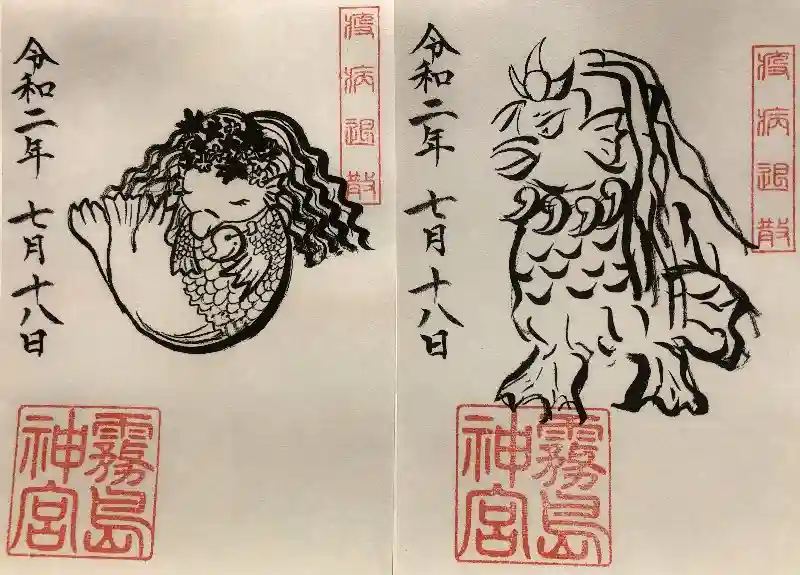 疫病退散
令和二年 七月十八日
霧島神宮
疫病退散
令和二年 七月十八日
霧島神宮